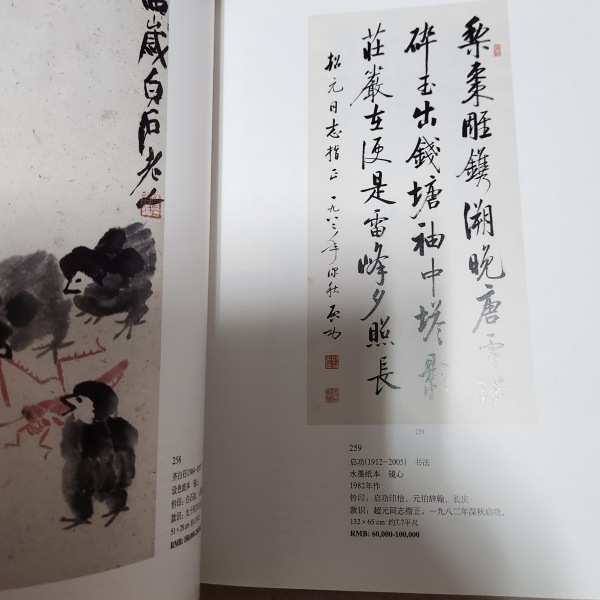 歲白石老人
梨棗雕鐫溯晚唐
碎玉出錢塘袖中塔影
莊嚴在便是雷峰夕照長
超元同志指正 一九八二年深秋 启功
259
258
齐白石(1864-
设色纸本 镜心
钤印:
款识:
51×28 cm
RMB:
259
启功(1912~2005) 书法
水墨纸本 镜心
1982年作
钤印:启功印信、元伯辞翰、长庆
款识:超元同志指正。一九八二年深秋启功。
132×65 cm 约7.7平尺
RMB: 60,000-100,000